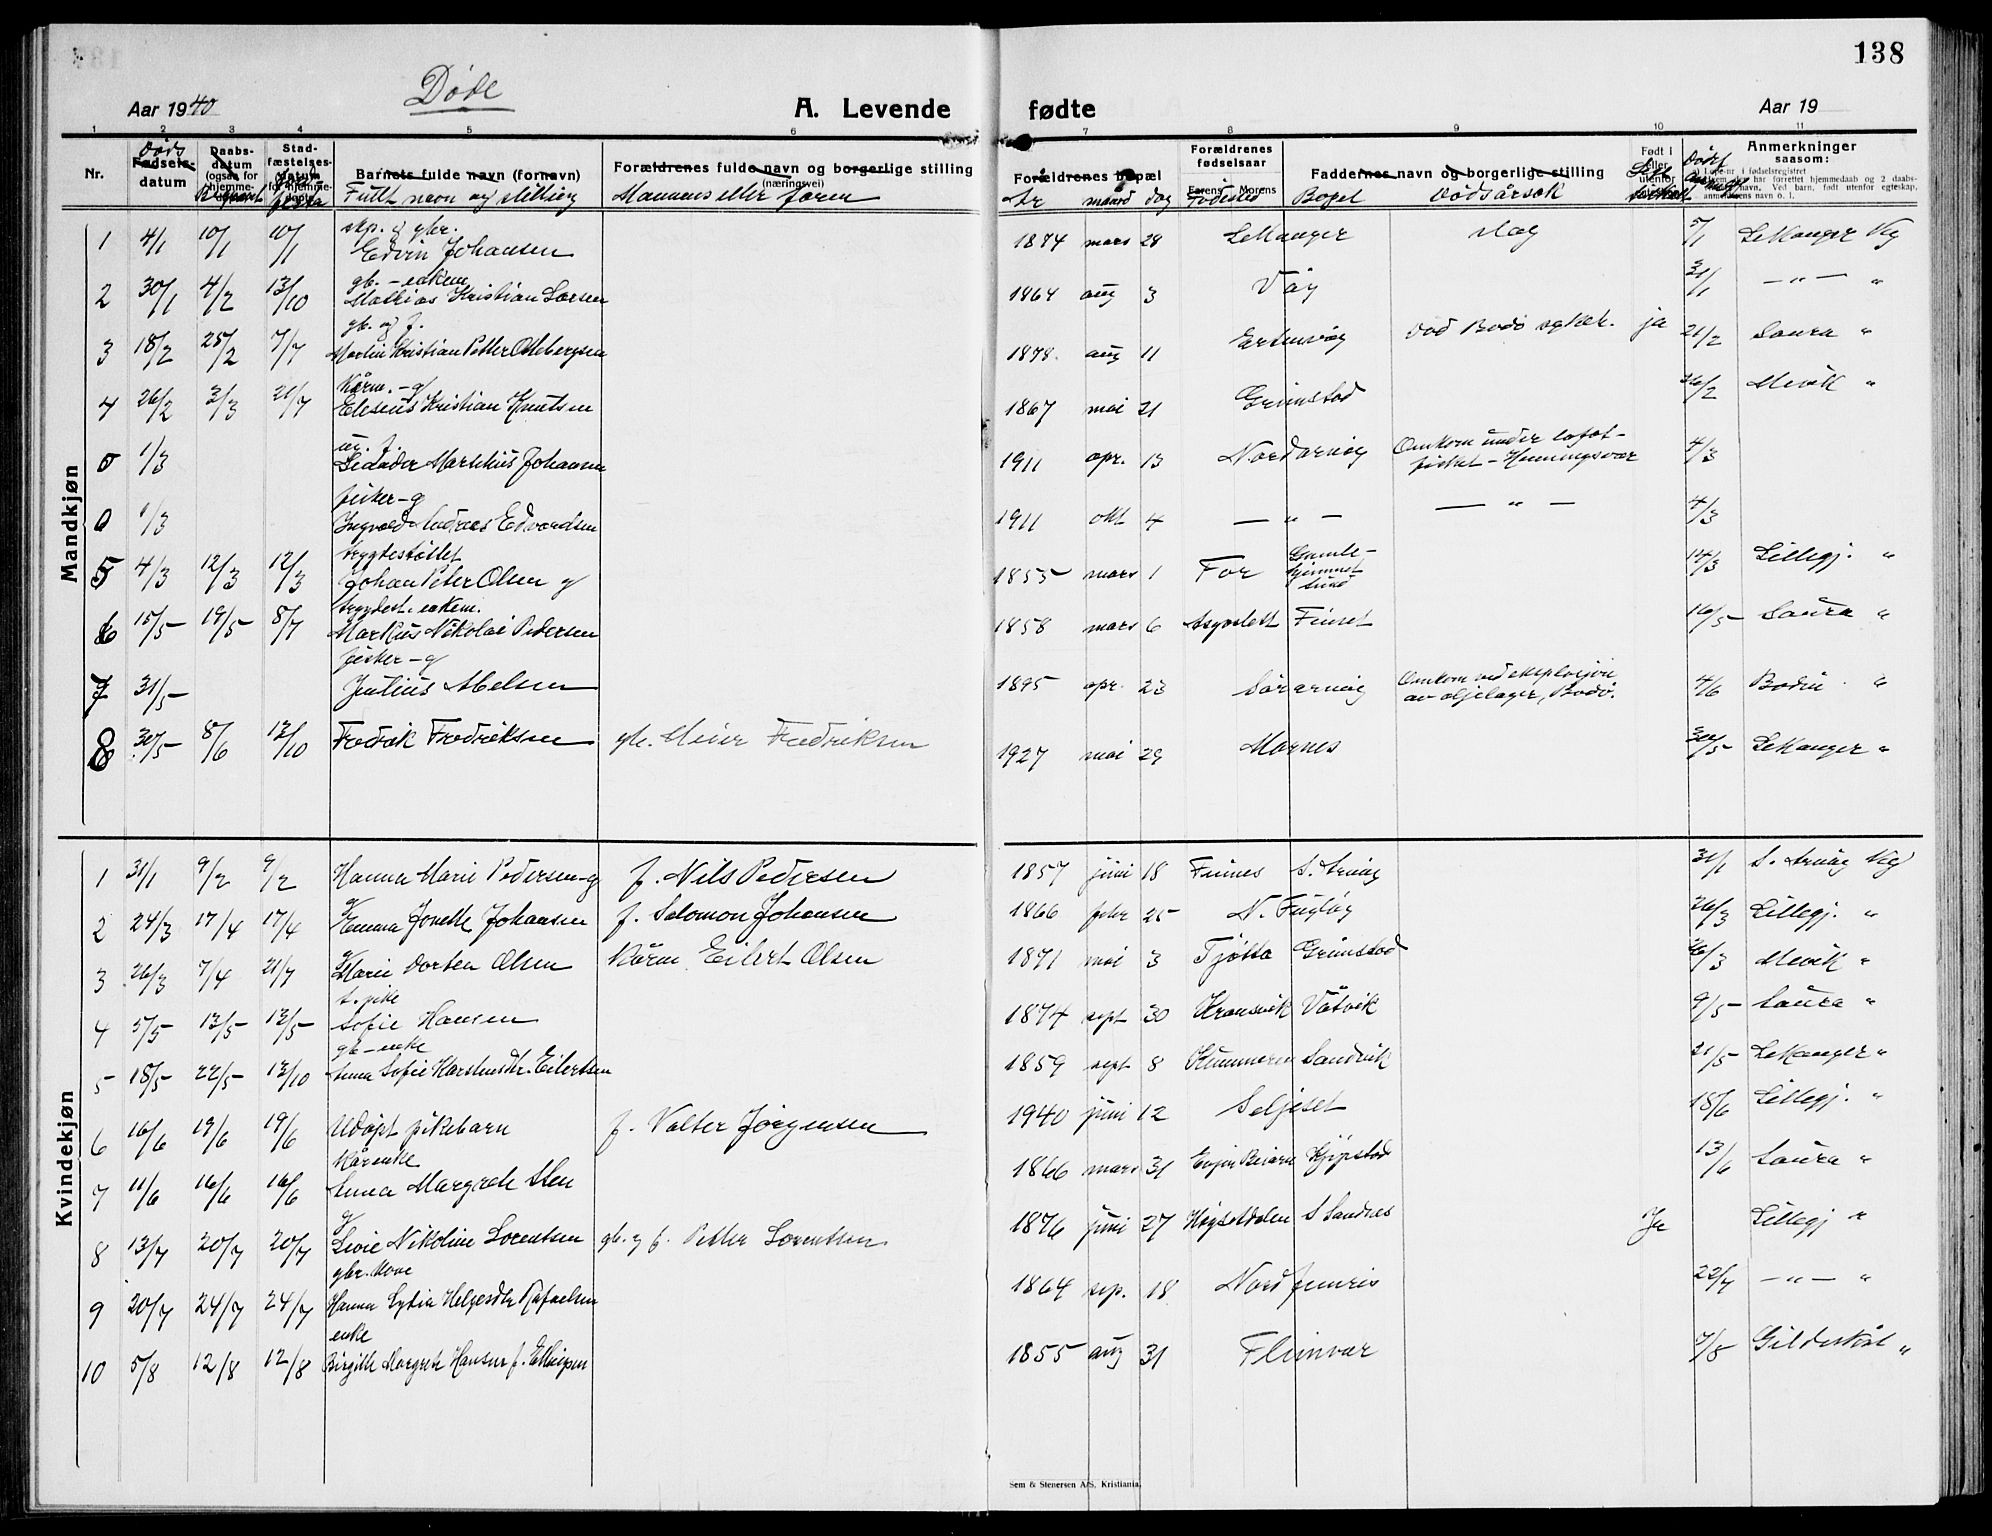 138
Døde
Aar 1940
A. Levende fødte
Aar 19
1 2 3 4 5 6 7 8 9 10 11
Nr.
Døds
Fødsels-datum
Daabs-datum (også for hjemme-døpte)
Begravet
Stad-fæstelses-datum for hjemme-døpte
Barnets fulde navn (fornavn)
Fullt navn og stilling
Forældrenes fulde navn og borgerlige stilling
(næringsvei)
Mannens eller faren
Forældrenes bopæl
År måned dag
Forældrenes fødselsaar
Farens Morens
Fødested
Faddernes navn og borgerlige stilling
Bopel Dødsårsak
Født i eller utenfor
Anmerkninger
saasom:
Mandkjøn
skp. og gbr.
1 4/1 10/1 10/1 Edvin Johansen 1874 mars 28 Lekanger slag 5/1 Lekanger Vig
gb. - enkem
2 30/1 4/2 13/10 Mathias Kristian Larsen 1864 aug 3 Våg 31/1 — „ — „
gb. og f.
3 18/2 25/2 7/7 Martin Kristian Petter Ottebergsen 1878 aug 11 Ertenvåg Død Bodø sykeh. ja 21/2 Saura „
Kårm. - g
4 26/2 3/3 21/7 Elesius Kristian Knutsen 1867 mai 21 Grimstad 26/2 Mevik „
ur. f.
0 1/3 Leander Martinus Johansen 1911 apr. 13 Nordarnøy Omkom under lofot-fisket - Henningsvær 4/3
fisker - g
0 1/3 Ingvald Andreas Edvardsen 1911 okt 4 — „ — — „ — 4/3
trygdestøttet
5 4/3 12/3 12/3 Johan Peter Olsen g 1855 mars 1 For Gamle-hjemmet Sund 14/3 Lillegj. „
trygdest. enkem.
6 15/5 19/5 8/7 Markus Nikolai Pedersen 1858 mars 6 Finset 16/5 Saura „
fisker - g
7 31/5 Julius Abelsen 1895 apr. 23 Sørarnøy Omkom ved eksplosjon av oljelager, Bodø. 4/6 Bodin „
8 30/5 8/6 13/10 Fredrik Fredriksen gb. Meier Fredriksen 1927 mai 29 Mårnes 30/5 Lekanger „
Kvindekjøn
1 31/1 9/2 9/2 Hanna Marie Pedersen - g f. Nils Pedersen 1857 juni 18 Finnes S. Arnøy 31/1 S. Arnøy Vig
g
2 24/3 17/4 17/4 Emma Jonette Johansen f. Salomon Johansen 1866 febr 25 N. Fugløy 26/3 Lillegj. „
g
3 26/3 7/4 21/7 Marie Dortea Olsen Kårm Eilert Olsen 1871 mai 3 Tjøtta Grimstad 26/3 Mevik „
t. pike
4 5/5 13/5 13/5 Sofie Hansen 1874 sept 30 Kransvik Våtvik 9/5 Saura „
gb - enke
5 18/5 22/5 13/10 Anna Sofie Karstensdr. Eilertsen 1859 sept 8 Sandvik 21/5 Lekanger „
6 16/6 19/6 19/6 Udøpt pikebarn f. Valter Jørgensen 1940 juni 12 Seljeset 18/6 Lillegj. „
Kårenke
7 11/6 16/6 16/6 Anna Margrete Sten 1866 mars 31 Beiarn Kjøpstad 13/6 Saura „
g
8 13/7 20/7 20/7 Livie Nikoline Lorentsen gb. og f. Petter Lorentsen 1876 juni 27 Høgsetdalen S Sandnes Ja Lillegj „
gbr. kone
9 20/7 24/7 24/7 Hanna Lydia Helgesdtr Rafaelsen 1864 sep. 18 Nordfinnris 22/7 — „ — „
enke
10 5/8 12/8 12/8 Birgitte Margrete Hansen f. Ellingsen 1855 aug 31 Fleinvær 7/8 Gildeskål „
Sem & Stenersen A/S, Kristiania.